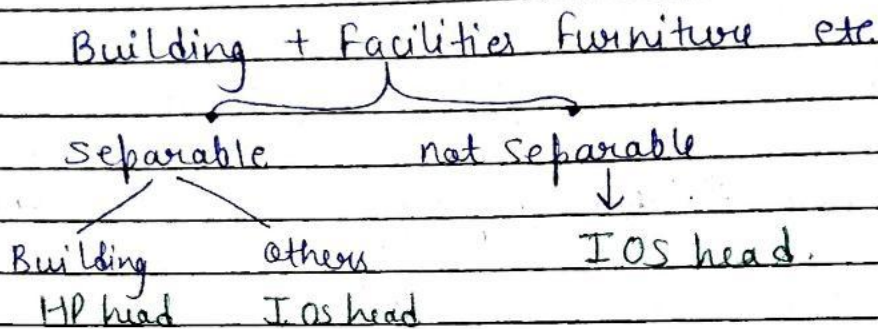 Building + Facilities Furniture etc
Separable not separable
Building Others IOS head.
HP head IOS head